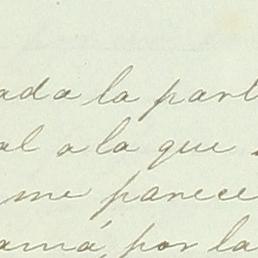 ada la part
al a la que
me parece
amá, por la